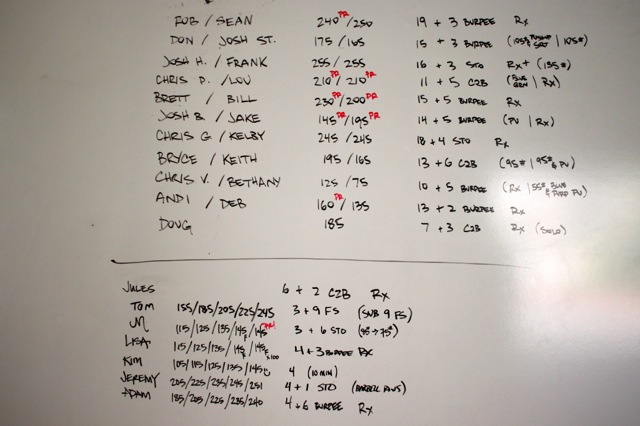 ROB / SEAN 240 PR / 250 19 + 3 BURPEE Rx
DON / JOSH ST. 175 / 165 15 + 3 BURPEE (105# | 105#)
JOSH H. / FRANK 255 / 255 16 + 3 STO Rx+ (135#)
CHRIS D. / LOU 210 PR / 210 PR 11 + 5 C2B (BLUE GRN | Rx)
BRETT / BILL 230 PR / 200 PR 15 + 5 BURPEE Rx
JOSH B. / JAKE 145 PR / 195 PR 14 + 5 BURPEE (PU | Rx)
CHRIS G / KELBY 245 / 245 18 + 4 STO Rx
BRYCE / KEITH 195 / 165 13 + 6 C2B (95# | 95# & PU)
CHRIS V. / BETHANY 125 / 75 10 + 5 BURPEE (Rx | 55# BLUE & PURP PU)
ANDI / DEB 160 PR / 135 13 + 2 BURPEE Rx
DOUG 185 7 + 3 C2B Rx (SOLO)
JULES 6 + 2 C2B Rx
TOM 155/185/205/225/245 3 + 9 FS (SUB 9 FS)
115/125/135/145/145 PR! 3 + 6 STO (85 → 75#)
LISA 115/125/135/145/145 4 + 3 BURPEE Rx
KIM 105/115/125/135/145 4 (10 MIN)
JEREMY 205/225/235/245/251 4 + 1 STO (BARBELL ROWS)
ADAM 185/205/225/235/240 4 + 6 BURPEE Rx